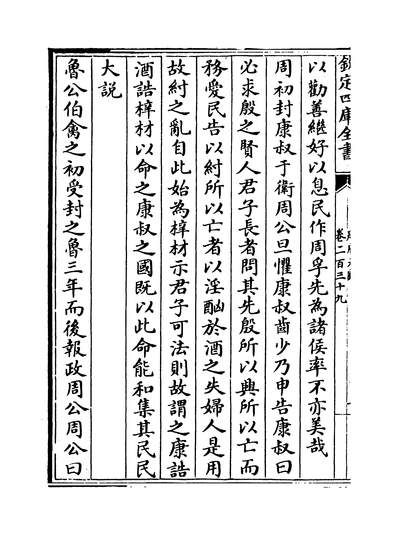 欽定四庫全書
卷二百三十九
以勸善繼好以息民作周孚先為諸侯率不亦美哉
周初封康叔于衛周公旦懼康叔齒少乃申告康叔曰
必求殷之賢人君子長者問其先殷所以興所以亡而
務愛民告以紂所以亡者以淫酗於酒之失婦人是用
故紂之亂自此始為梓材示君子可法則故謂之康誥
酒誥梓材以命之康叔之國既以此命能和集其民民
大説
魯公伯禽之初受封之魯三年而後報政周公周公曰